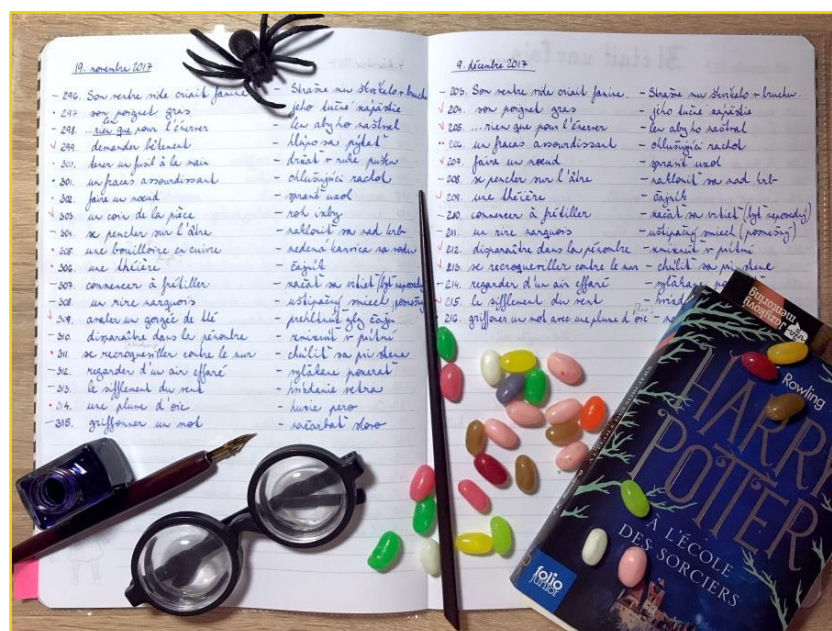 19. novembre 2017
- 296. Son ventre vide criait famine - Strašne mu škvŕkalo v bruchu
297. son poignet gras - jeho tučné zápästie
298. ...rien que pour l'énerver - len aby ho naštval
299. demander bêtement - hlúpo sa pýtať
300. tenir un fusil à la main - držať v ruke pušku
301. un fracas assourdissant - ohlušujúci rachot
302. faire un nœud - spraviť uzol
303. un coin de la pièce - roh izby
304. se pencher sur l'âtre - nakloniť sa nad krb
305. une bouilloire en cuivre - medená kanvica na vodu
306. une théière - čajník
307. commencer à frétiller - začať sa vrtieť
308. un rire narquois - uštipačný smiech
309. avaler un gorgée de thé - prehltnúť čaju
310. disparaître dans la pénombre - zmiznúť v prítmí
311. se recroqueviller contre le mur - chúliť sa pri stene
312. regarder d'un air effaré - vyľakane pozerať
313. le sifflement du vent - hvízdanie vetra
314. une plume d'oie - husie pero
315. griffonner un mot - načarbať slovo
9. décembre 2017
Son ventre vide criait famine - Strašne mu škvŕkalo v bruchu
204. son poignet gras - jeho tučné zápästie
205. ...rien que pour l'énerver - len aby ho naštval
206. un fracas assourdissant - ohlušujúci rachot
207. faire un nœud - spraviť uzol
208. se pencher sur l'âtre - nakloniť sa nad krb
209. une théière - čajník
210. commencer à frétiller - začať sa vrtieť (byť neposedný)
211. un rire narquois - uštipačný smiech (posmešný)
212. disparaître dans la pénombre - zmiznúť v prítmí
213. se recroqueviller contre le mur - chúliť sa pri stene
214. regarder d'un air effaré - vyľakane
215. le sifflement du vent
216. griffonner un mot avec une plume d'oie
jazykový
mentoring
Rowling
HARRY
POTTER
À L'ÉCOLE
DES SORCIERS
folio
junior